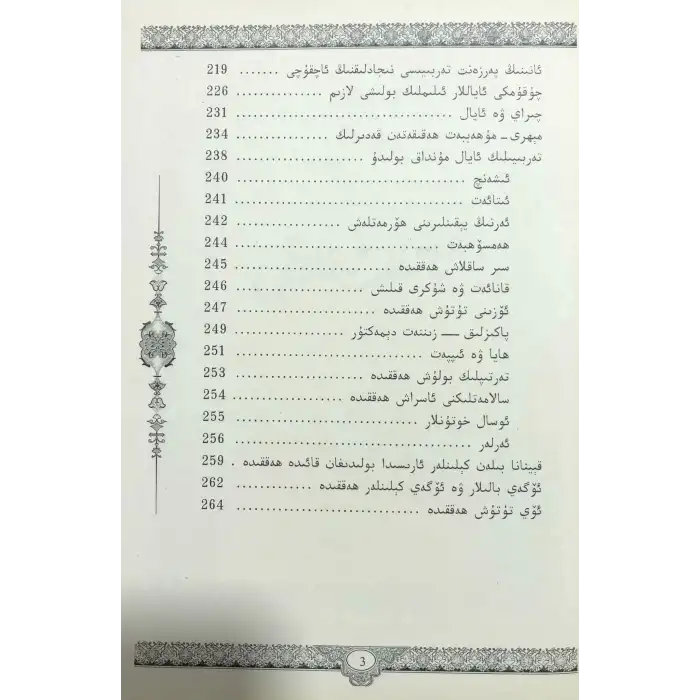 ئانىنىڭ پەرزەنت تەربىيىسى نىجادلىقنىڭ ئاچقۇچى ....... 219
چۇقۇمكى ئاياللار ئىلىملىك بولىشى لازىم ............... 226
چىراي ۋە ئايال ............................... 231
مېھرى – مۇھەببەت ھەقىقەتەن قەدىرلىك ............... 234
تەربىيىلىك ئايال مۇنداق بولىدۇ ................... 238
ئىشەنچ ............................... 240
ئىتائەت ............................... 241
ئەرنىڭ يېقىنلىرىنى ھۆرمەتلەش ................. 242
ھەمسۆھبەت ............................ 244
سىر ساقلاش ھەققىدە ....................... 245
قانائەت ۋە شۈكرى قىلىش ..................... 246
ئۆزىنى تۇتۇش ھەققىدە ....................... 247
پاكىزلىق — زىننەت دېمەكتۇر ................. 249
ھايا ۋە ئىپپەت ............................ 251
تەرتىپلىك بولۇش ھەققىدە ..................... 253
سالامەتلىكنى ئاسراش ھەققىدە ................. 254
ئوسال خوتۇنلار .......................... 255
ئەرلەر ............................... 256
قېينانا بىلەن كېلىنلەر ئارىسىدا بولىدىغان قائىدە ھەققىدە . 259
ئۆگەي بالىلار ۋە ئۆگەي كېلىنلەر ھەققىدە ............. 262
ئۆي تۇتۇش ھەققىدە .......................... 264
3